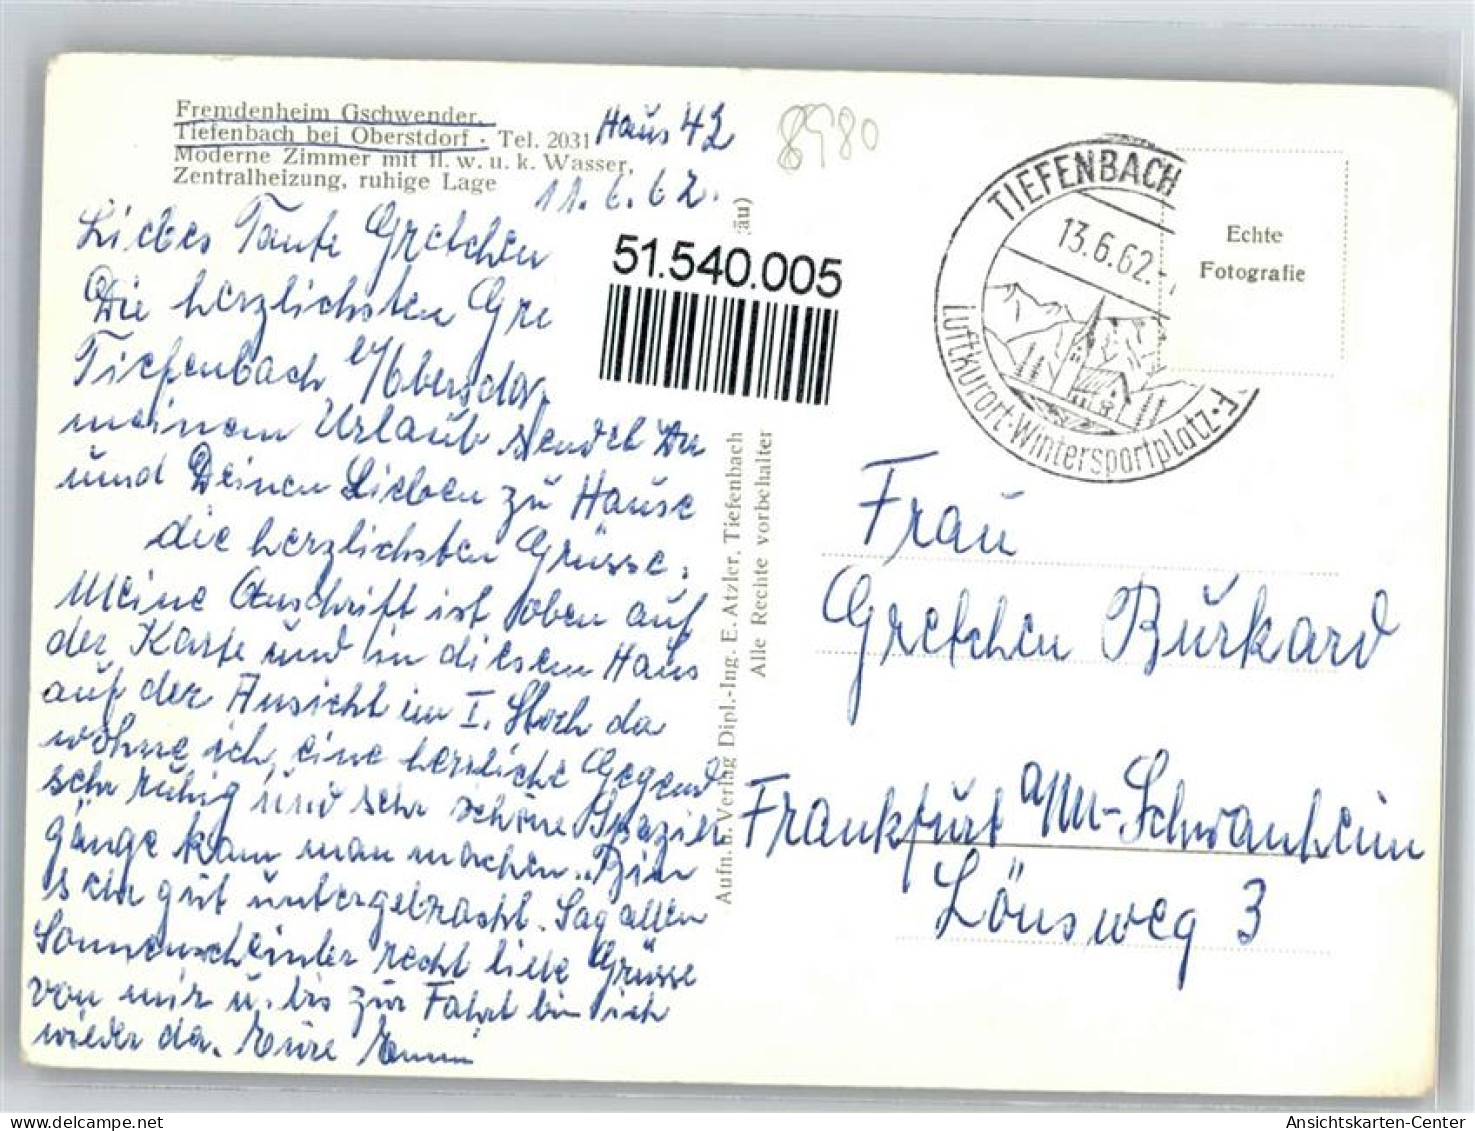 Fremdenheim Gschwender,
Tiefenbach bei Oberstdorf · Tel. 2031 Haus 42
Moderne Zimmer mit fl. w. u. k. Wasser,
Zentralheizung, ruhige Lage
11.6.62.
8980
Liebes Tante Gretchen
Die herzlichsten Grü
Tiefenbach b/Obersdor
meinem Urlaub sendet Dir
und Deinen Lieben zu Hause
die herzlichsten Grüsse.
Meine Anschrift ist oben auf
der Karte und in diesem Haus
auf der Ansicht im I. Stock da
wohne ich, eine herrliche Gegend
sehr ruhig und sehr schöne Spazier
gänge kann man machen. Bin
sehr gut untergebracht. Sag allen
recht liebe Grüsse
von mir u. bis zur Fahrt bin ich
wieder da. Eure Emmi
51.540.005
äu)
Aufn. u. Verlag Dipl.-Ing. E. Atzler, Tiefenbach
Alle Rechte vorbehalten
TIEFENBACH
13.6.62.-
Luftkurort·Wintersportplatz·F.
Echte
Fotografie
Frau
Gretchen Burkard
Frankfurt a/M-Schwanheim
Lönsweg 3
Ansichtskarten-Center